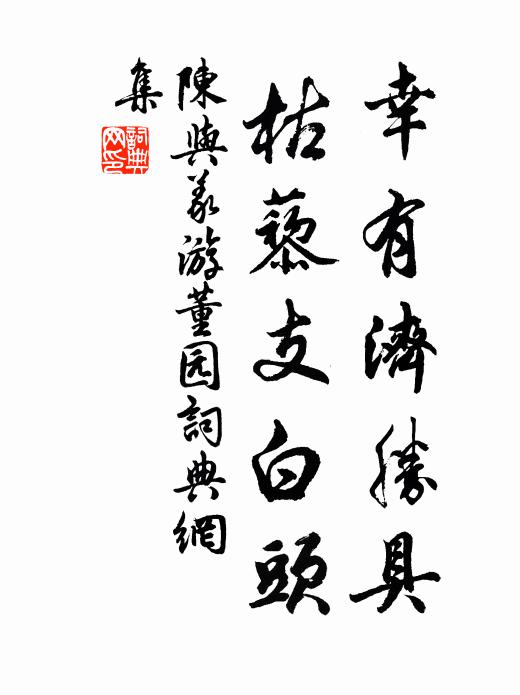 幸有濟勝具
枯藜支白頭
陳與義游董园詞典網
集
詞典
网印